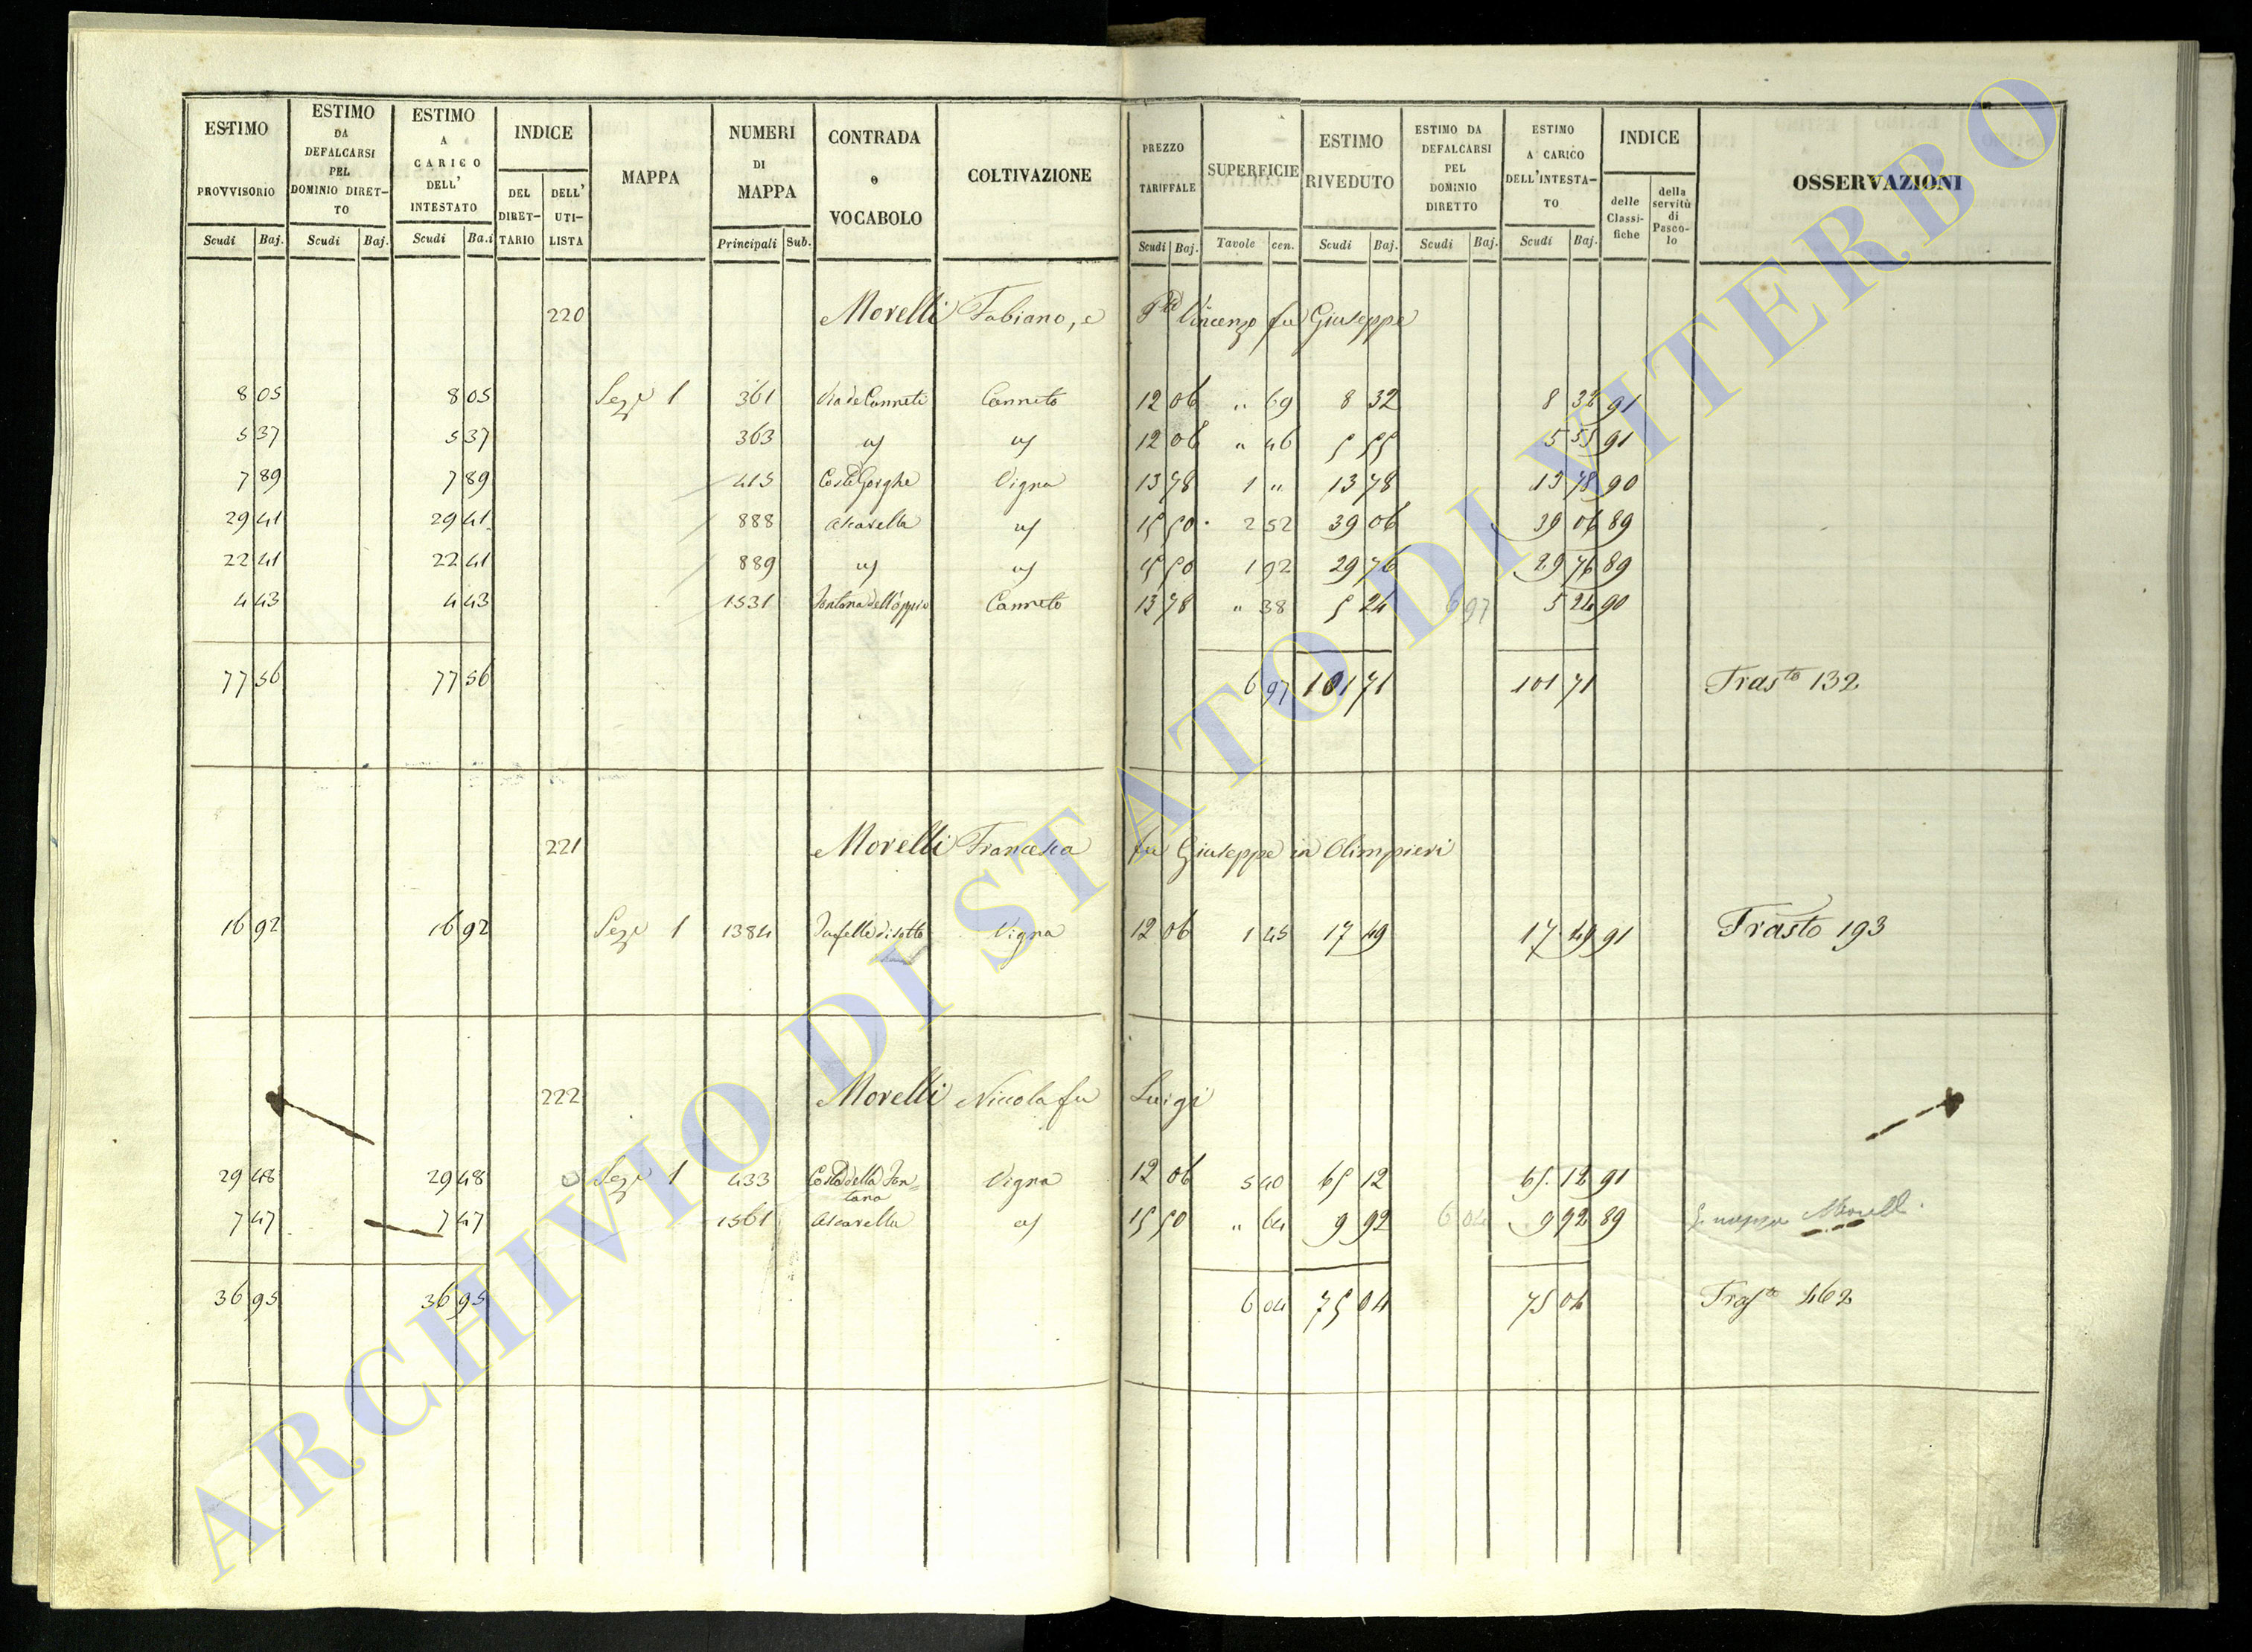 ESTIMO PROVVISORIO | ESTIMO DA DEFALCARSI PEL DOMINIO DIRETTO | ESTIMO A CARICO DELL' INTESTATO | INDICE | MAPPA | NUMERI DI MAPPA | CONTRADA o VOCABOLO | COLTIVAZIONE | PREZZO TARIFFALE | SUPERFICIE | ESTIMO RIVEDUTO | ESTIMO DA DEFALCARSI PEL DOMINIO DIRETTO | ESTIMO A CARICO DELL'INTESTATO | INDICE | OSSERVAZIONI
DEL DIRETTARIO | DELL' UTILISTA | delle Classifiche | della servitù di Pascolo
Scudi | Baj. | Scudi | Baj. | Scudi | Ba.i | Principali | Sub. | Scudi | Baj. | Tavole | cen. | Scudi | Baj. | Scudi | Baj. | Scudi | Baj.
220 Morelli Fabiano, e Vincenzo fu Giuseppe
8 05 | 8 05 | Sezе 1 | 361 | Via de Canneti | Canneto | 12 06 | " 69 | 8 32 | 8 32 | 91
5 37 | 5 37 | 363 | " 46 | 12 06 | 5 55 | 5 55 | 91
7 89 | 7 89 | 415 | Vigna | 13 78 | 1 " | 13 78 | 13 78 | 90
29 41 | 29 41 | 888 | Ascarella | 15 50 | 2 52 | 39 06 | 39 06 | 89
22 41 | 22 41 | 889 | 15 50 | 1 92 | 29 76 | 29 76 | 89
4 43 | 4 43 | 1531 | Canneto | 13 78 | " 38 | 5 24 | 6 97 | 5 24 | 90
77 56 | 77 56 | 6 97 | 101 71 | 101 71 | Trasto 132
221 Morelli Francesca fu Giuseppe in Olimpieri
16 92 | 16 92 | Seze 1 | 1384 | Vigna | 12 06 | 1 45 | 17 49 | 17 49 | 91 | Trasto 193
222 Morelli Niccola fu Luigi
29 48 | 29 48 | Seze 1 | 433 | Costa della Fontana | Vigna | 12 06 | 5 40 | 65 12 | 65 12 | 91
7 47 | 7 47 | 1561 | Ascarella | 15 50 | " 64 | 9 92 | 6 04 | 9 92 | 89
36 95 | 36 95 | 6 04 | 75 04 | 75 04 | Trasto 462
ARCHIVIO DI STATO DI VITERBO